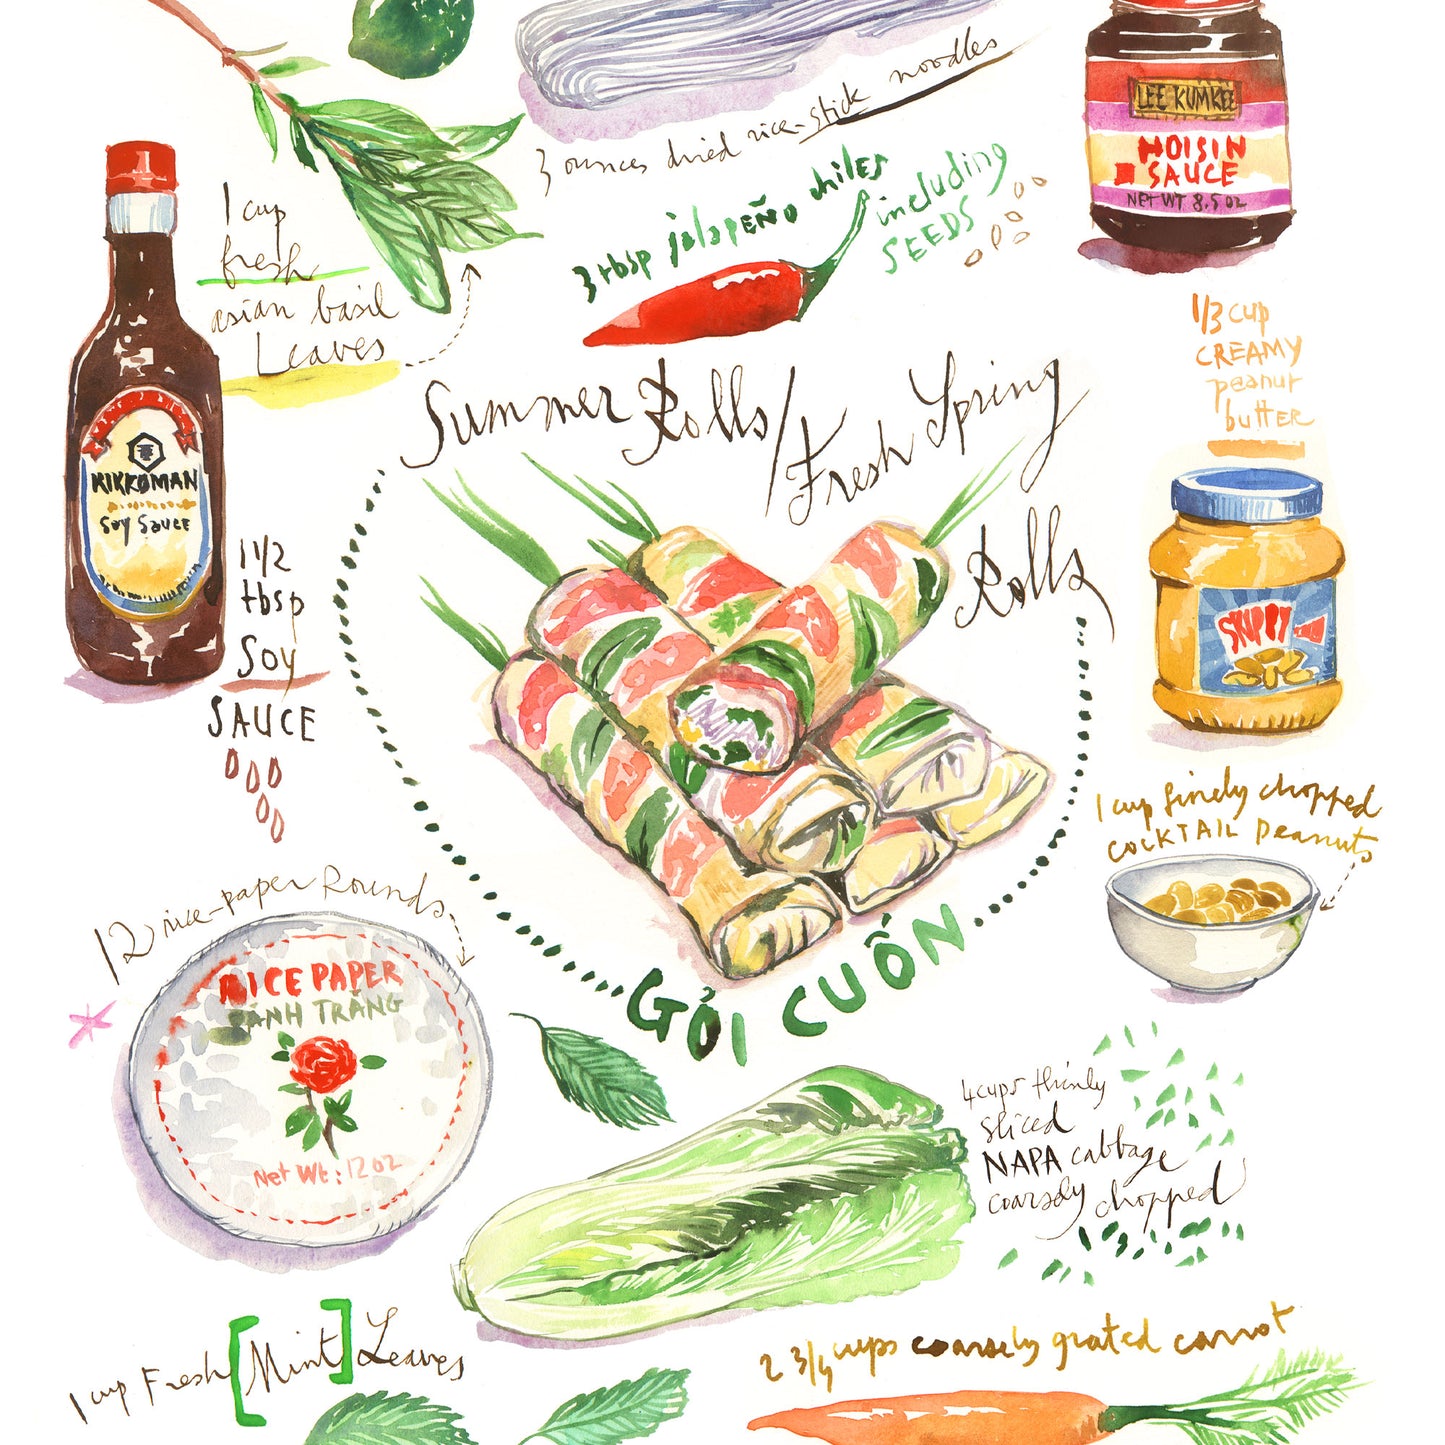 3 ounces dried rice-stick noodles
LEE KUM KEE
HOISIN
SAUCE
NET WT 8.5 OZ
1 cup
fresh
asian basil
Leaves
3 tbsp jalapeño chiles
including
SEEDS
1/3 cup
CREAMY
peanut
butter
Summer Rolls/Fresh Spring
Rolls
KIKKOMAN
Soy Sauce
1 1/2
tbsp
Soy
SAUCE
SKIPPY
1 cup finely chopped
COCKTAIL peanuts
12 rice-paper Rounds
RICE PAPER
BÁNH TRĂNG
Net Wt: 12 oz
GỎI CUỐN
4 cups thinly
sliced
NAPA cabbage
coarsely chopped
1 cup Fresh [Mint] Leaves
2 3/4 cups coarsely grated carrot